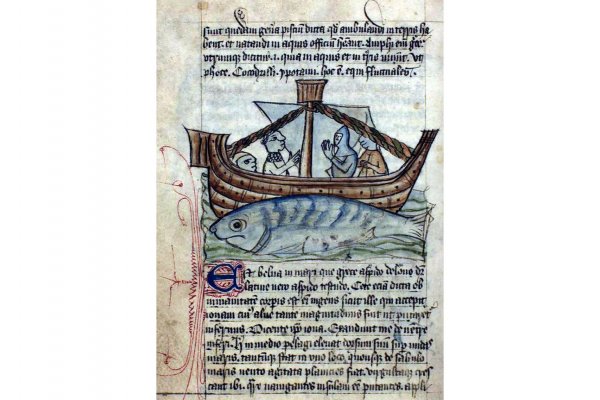 sunt quedam gen̄a pisciū dicta qd̓ ambulandi in terris ha
bent. et natandi in aquis officiū hēant. Amphi em̄ gre
utrumque dicitur .i. quia in aquis et in t̓ris uiuūt. ut
phoce. Cocodrilli. ypotami. hoc ē. equi fluctuales.
Est belua in mari que grece aspido delone dr̄
latine uero aspido testudo. Cete etiā dicta ob
inmanitatē corp̄is est em̄ ingens sicut ille qui excepit
ionam cuiꝰ aluꝰ tante magnitudinis fuit ut putaret̓
infernus. Dicente ip̄o iona. Exaudiuit me de uentre
inferi. H̄ in medio pelagi eleuat dorsum suū sup̄ undas
maris. tamdiuque stat in uno loco, quousque de sabulo
maris uento agitata planicies fiat. virgultaque cres
cant ibi. quare nauigantes insulam eē putantes. appli